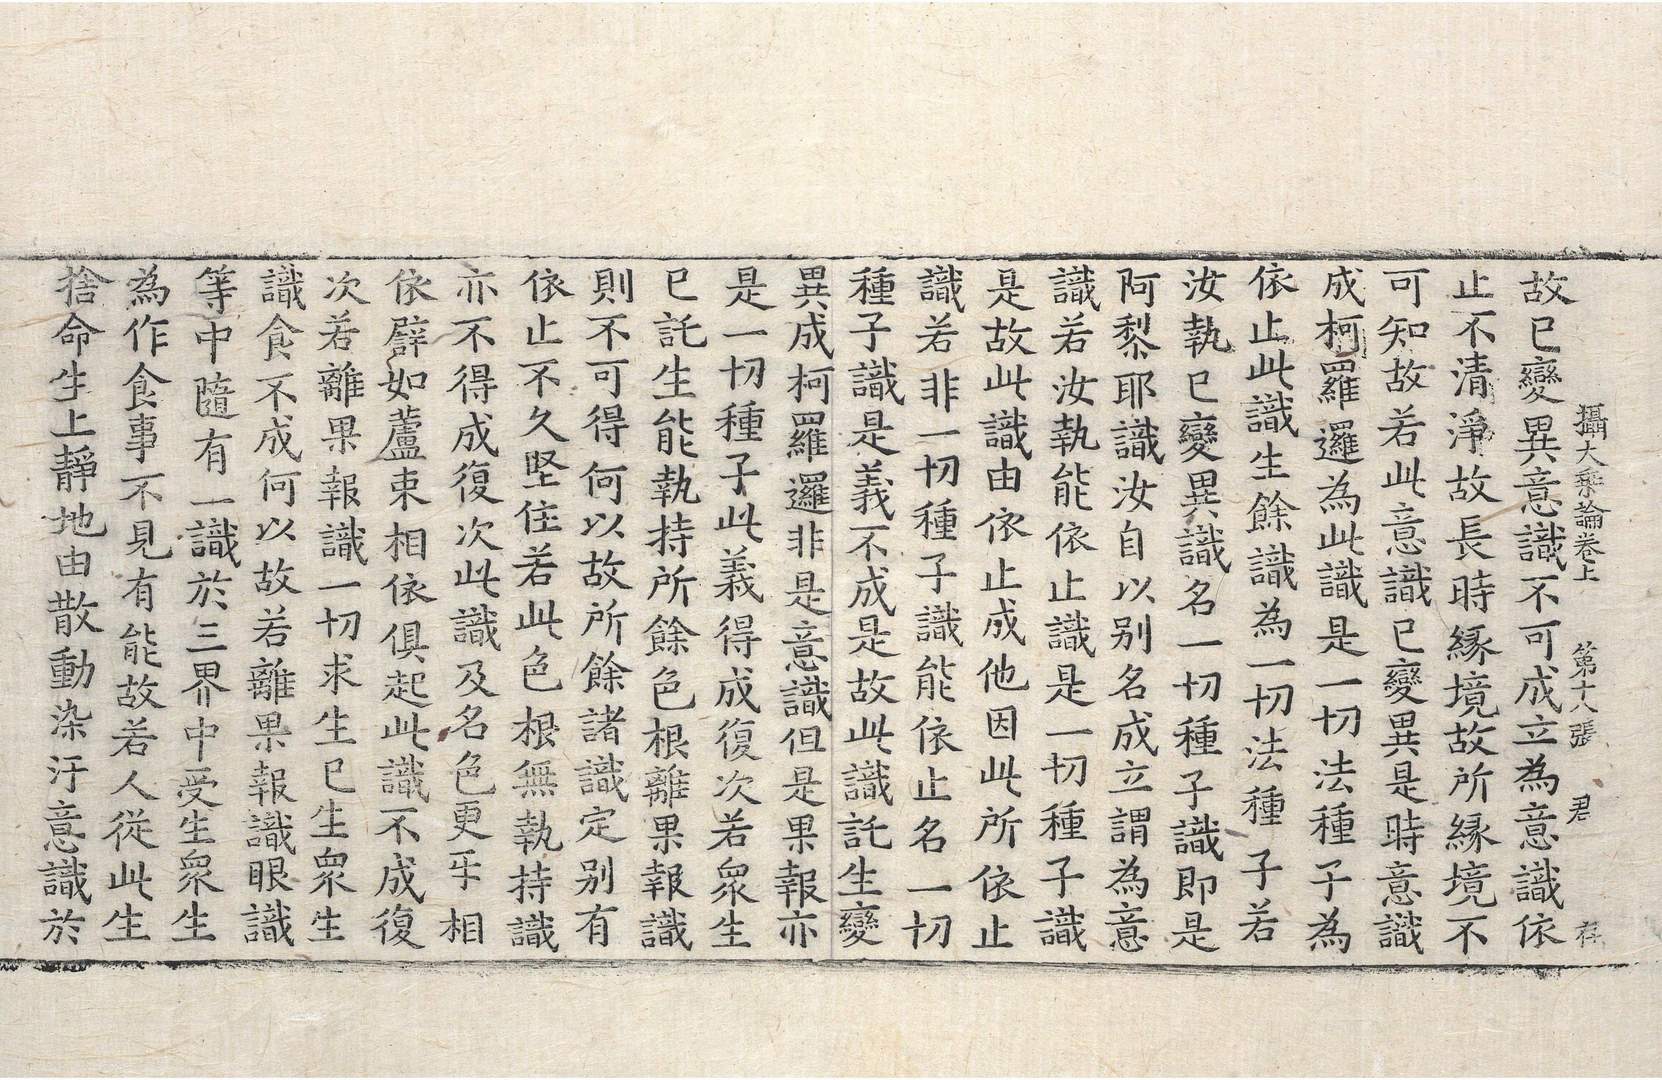 攝大乘論卷上　第十八張　君
故已變異意識不可成立為意識依
止不清淨故長時緣境故所緣境不
可知故若此意識已變異是時意識
成柯羅邏為此識是一切法種子為
依止此識生餘識為一切法種子若
汝執已變異識名一切種子識即是
阿黎耶識汝自以別名成立謂為意
識若汝執能依止識是一切種子識
是故此識由依止成他因此所依止
識若非一切種子識能依止名一切
種子識是義不成是故此識託生變
異成柯羅邏非是意識但是果報亦
是一切種子此義得成復次若眾生
已託生能執持所餘色根離果報識
則不可得何以故所餘諸識定別有
依止不久堅住若此色根無執持識
亦不得成復次此識及名色更牙相
依譬如蘆束相依俱起此識不成復
次若離果報識一切求生已生眾生
識食不成何以故若離果報識眼識
等中隨有一識於三界中受生眾生
為作食事不見有能故若人從此生
捨命生上靜地由散動染汙意識於